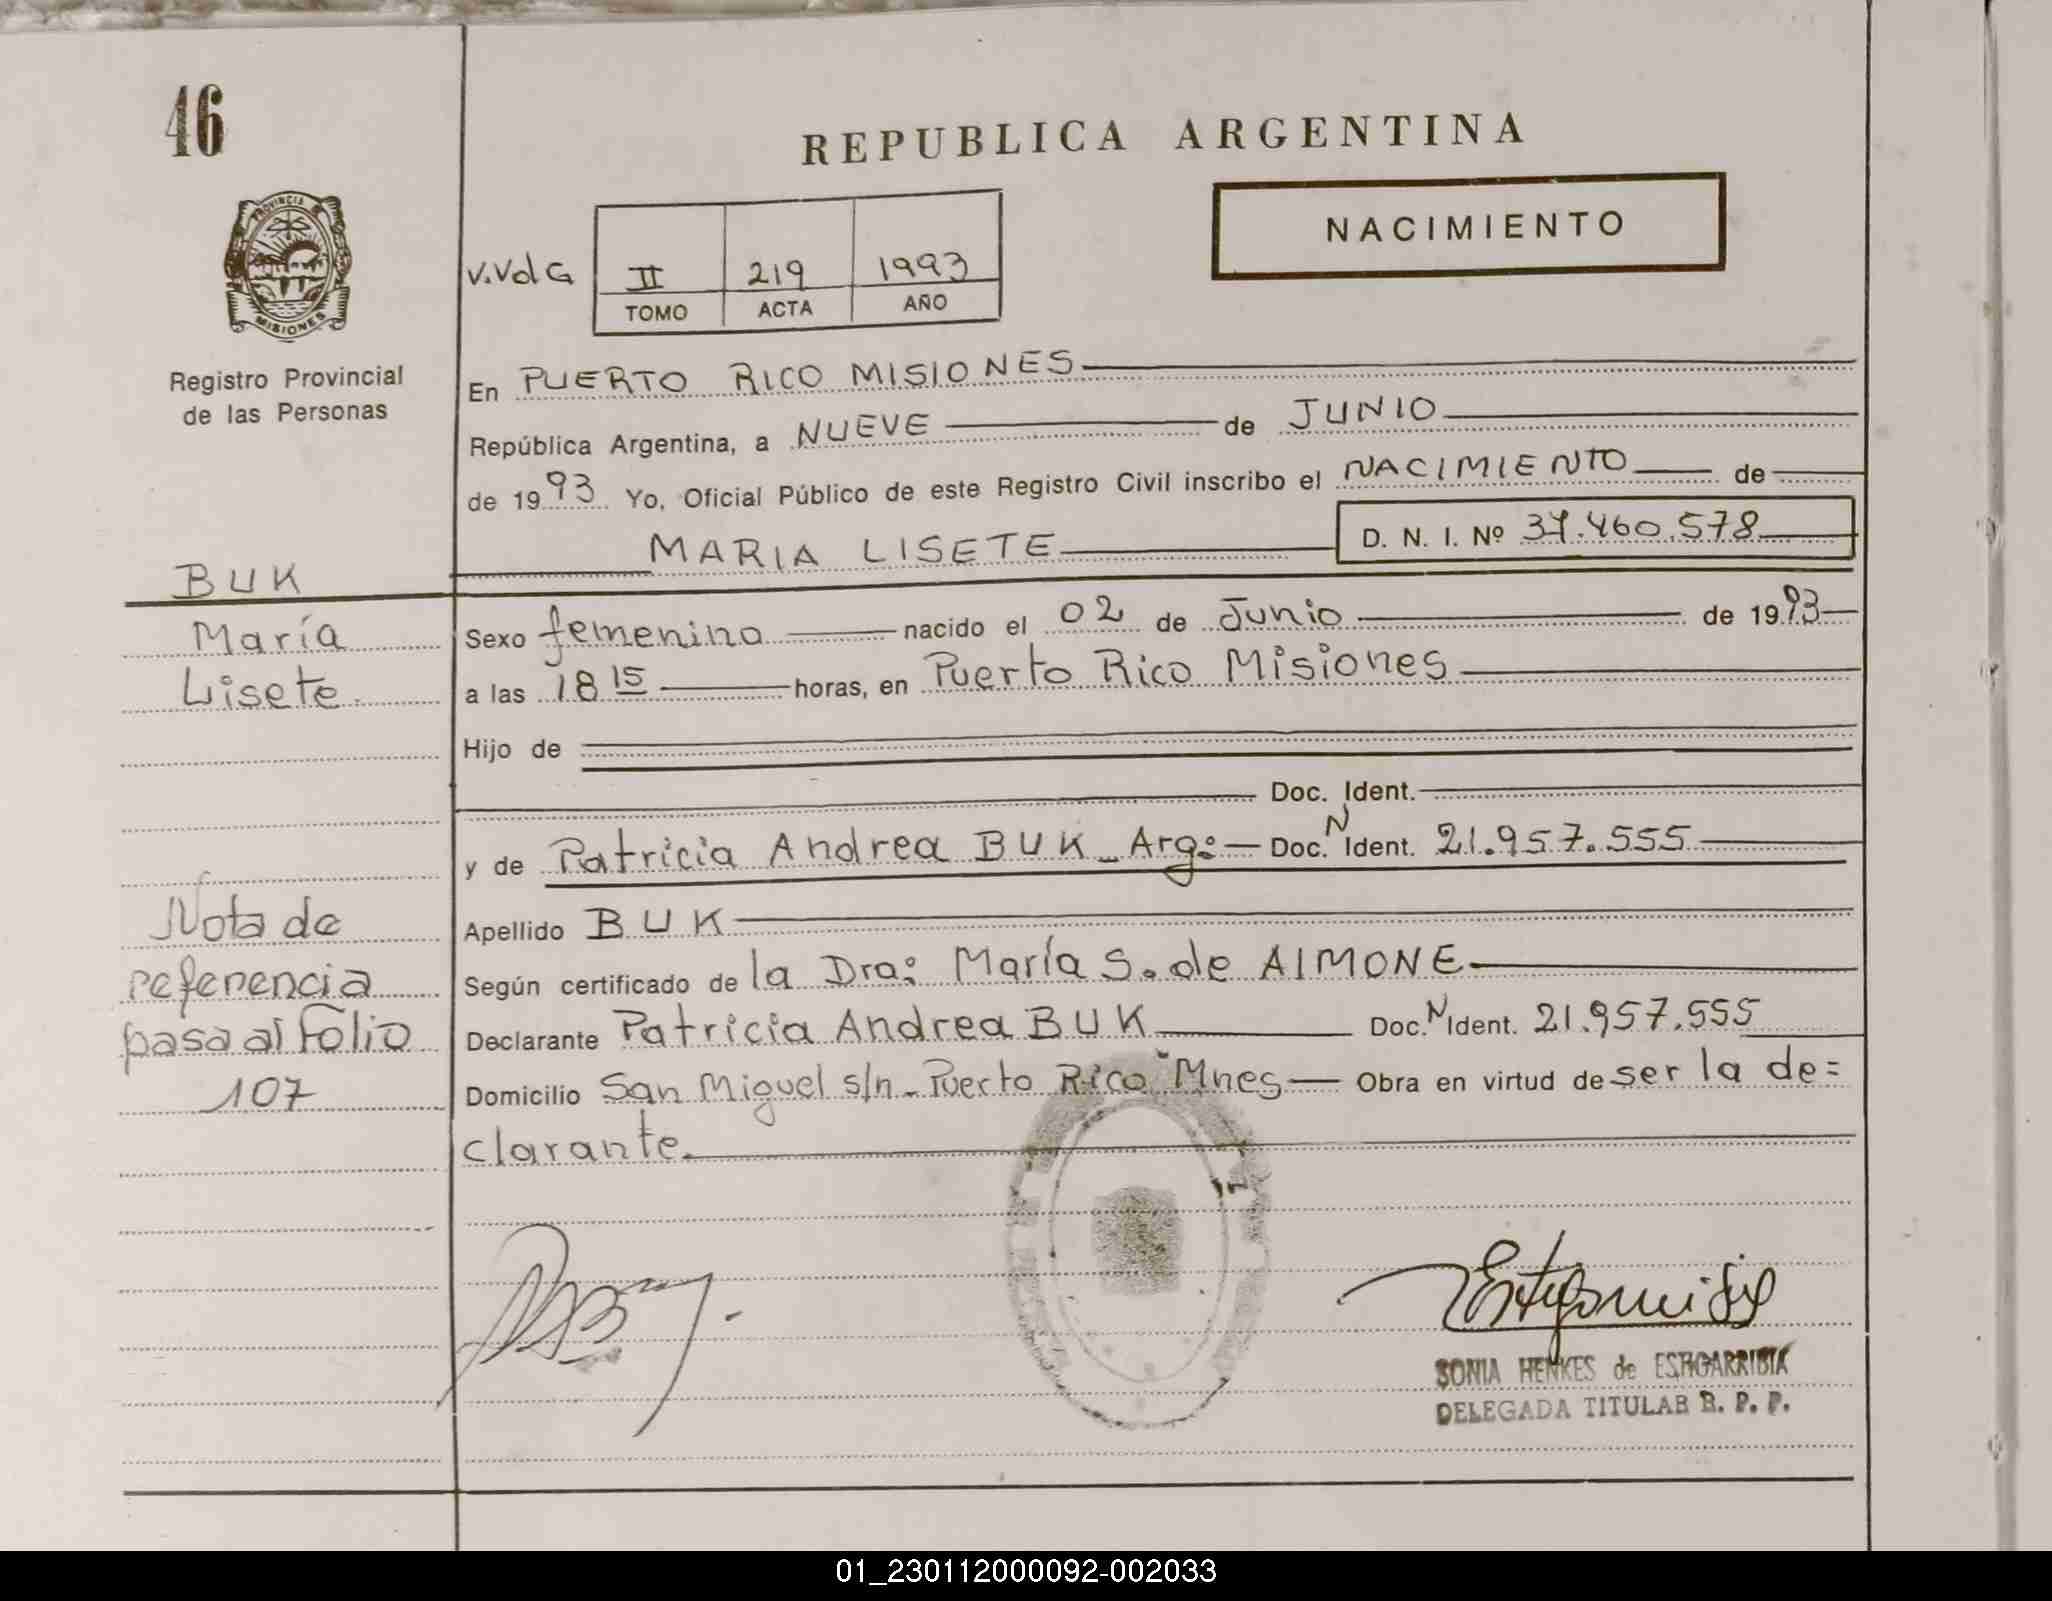 46
REPUBLICA ARGENTINA
NACIMIENTO
PROVINCIA
MISIONES
V.Vol G II 219 1993
TOMO ACTA AÑO
Registro Provincial
de las Personas
En PUERTO RICO MISIONES
República Argentina, a NUEVE de JUNIO
de 1993 Yo, Oficial Público de este Registro Civil inscribo el NACIMIENTO de
MARIA LISETE D. N. I. Nº 37.460.578
BUK
María
Lisete.
Sexo femenino nacido el 02 de Junio de 1993
a las 18 15 horas, en Puerto Rico Misiones
Hijo de
Doc. Ident.
y de Patricia Andrea BUK_ Arg: Doc. N Ident. 21.957.555
Apellido BUK
Según certificado de la Dra: María S. de AIMONE
Declarante Patricia Andrea BUK Doc. N Ident. 21.957.555
Domicilio San Miguel s/n - Puerto Rico Mnes Obra en virtud de ser la de=
clarante.
Nota de
referencia
pasa al Folio
107
SONIA HENKES de ESTIGARRIBIA
DELEGADA TITULAR R. P. P.
01_230112000092-002033